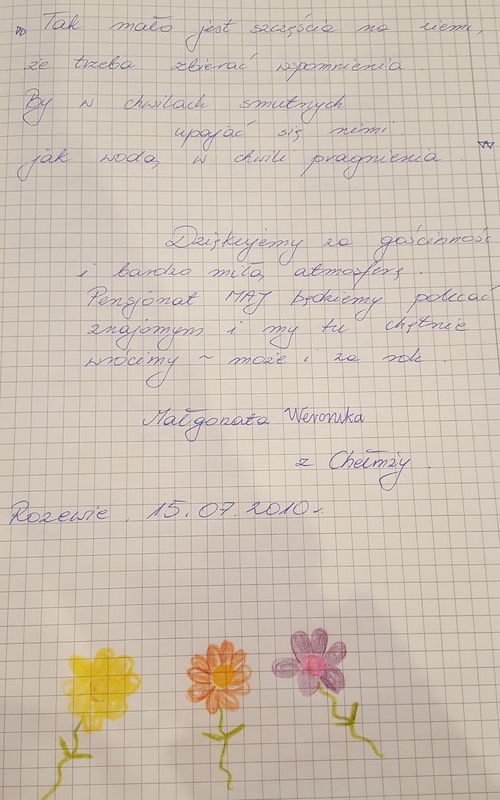 Tak mało jest szczęścia na ziemi,
że trzeba zbierać wspomnienia.
By w chwilach smutnych
upajać się nimi
jak wodą w chwili pragnienia.
Dziękujemy za gościnność
i bardzo miłą atmosferę.
Pensjonat MAJ będziemy polecać
znajomym i my tu chętnie
wrócimy ~ może i za rok.
Małgorzata Weronika
z Chełmży.
Rozewie. 15.07.2010r.